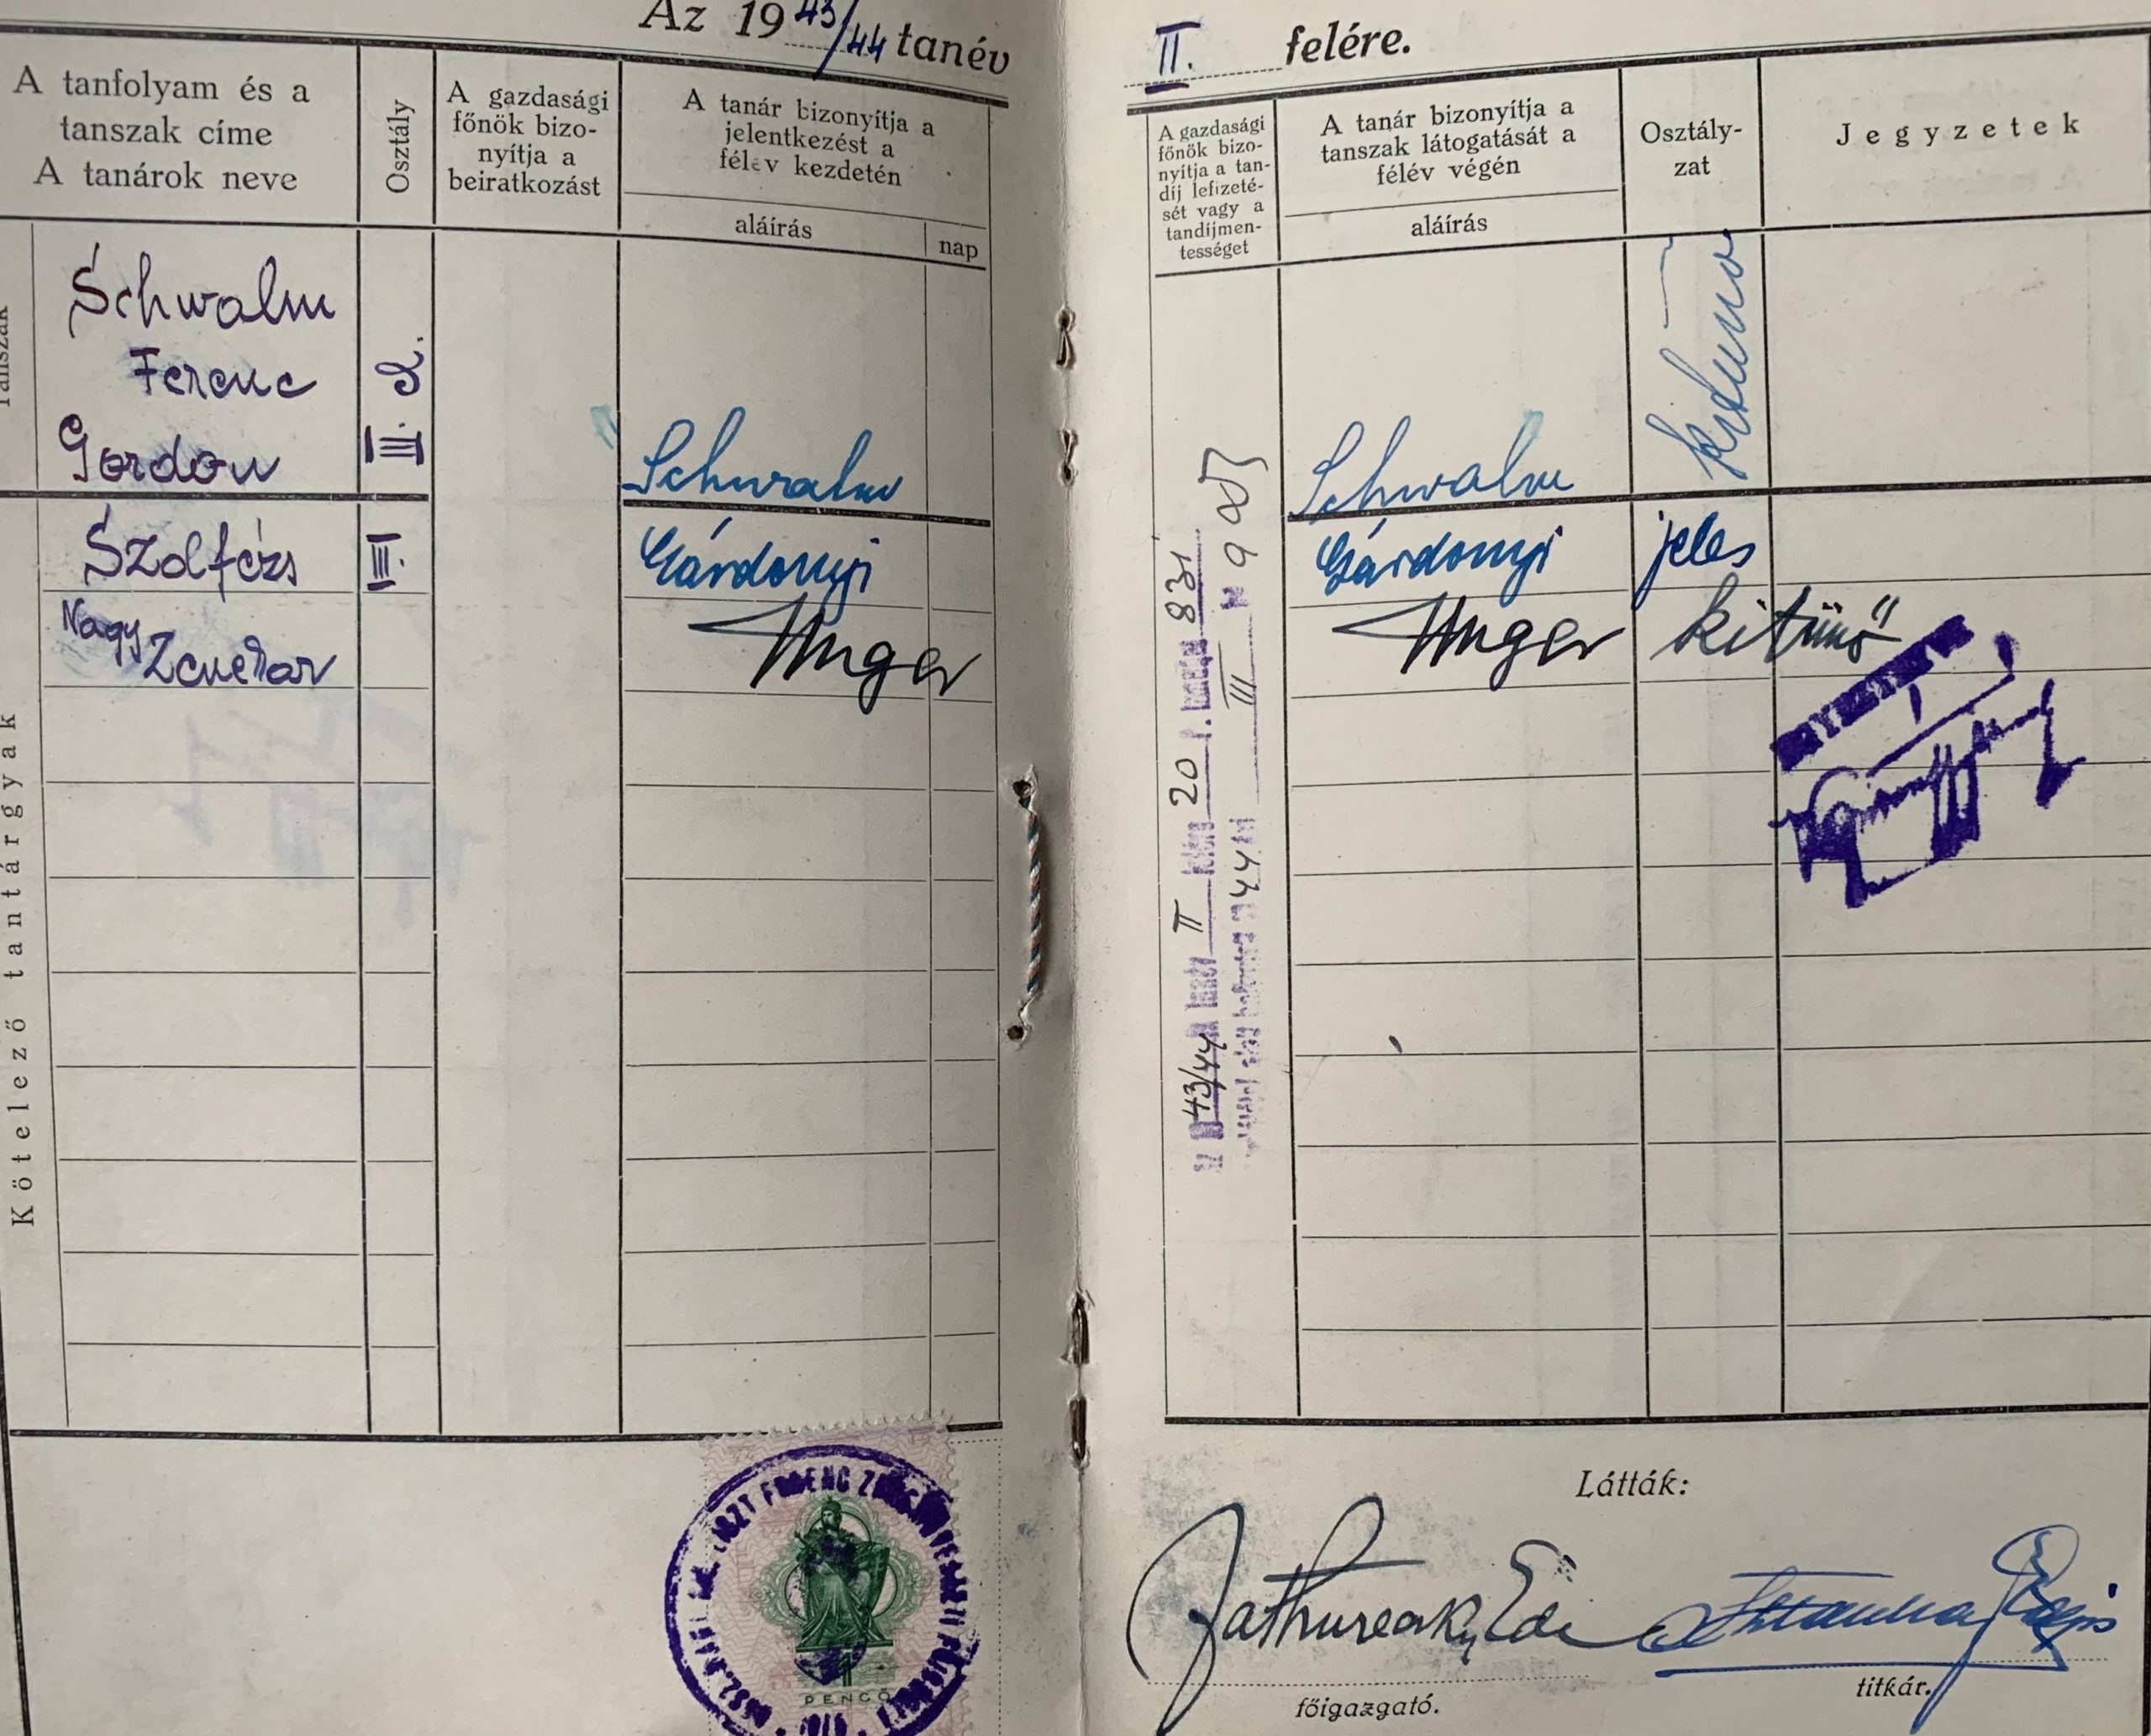 Az 1943/44 tanév
II. felére.
A tanfolyam és a
tanszak címe
A tanárok neve
Osztály
A gazdasági
főnök bizo-
nyítja a
beiratkozást
A tanár bizonyítja a
jelentkezést a
félév kezdetén
aláírás
nap
Schwalm
Ferenc
Gordon
III. d.
Schwalm
Szolfézs
III.
Gárdonyi
Nagy
Zenetar
Unger
Kötelező tantárgyak
PENGŐ
A gazdasági
főnök bizo-
nyítja a tan-
díj lefizeté-
sét vagy a
tandíjmen-
tességet
A tanár bizonyítja a
tanszak látogatását a
félév végén
aláírás
Osztály-
zat
Jegyzetek
43/44 II 20 831
44 III 9
Schwalm
kitűnő
Gárdonyi
jeles
Unger
kitűnő
Látták:
Zathureczky Ede
főigazgató.
titkár.